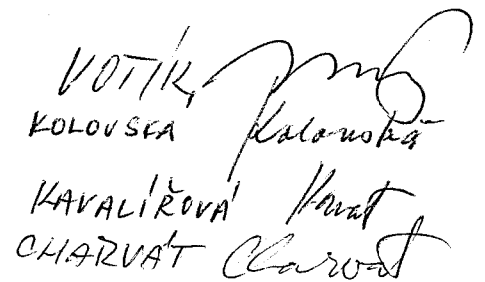 VOTÍK,
KOLOVSKA Kolovská
KAVALÍŘOVÁ
CHARVÁT Charvát